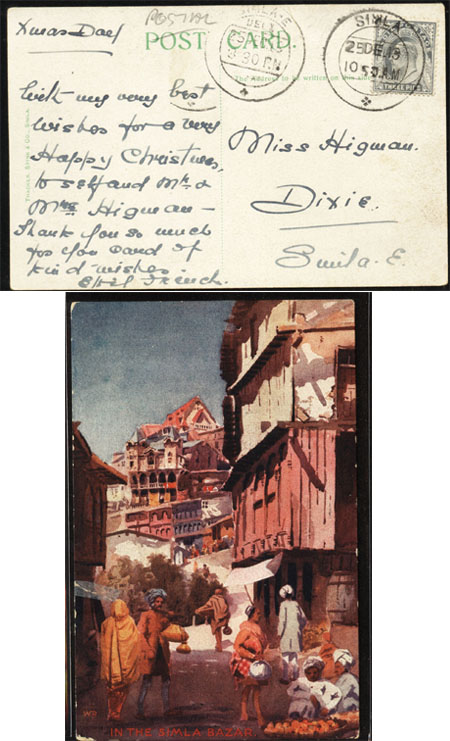 Xmas Day
POSTAL
POST CARD.
The Address to be written on this side
SIMLA-E
DELY
25 DE
5.30 P.M
SIMLA
25 DE
10 50 A.M
THREE PIES
With my very best
wishes for a very
Happy Christmas,
to self and Mr &
Mrs Higman —
Thank you so much
for you card of
kind wishes.
Ethel French.
Miss Higman.
Dixie.
Simla. E.
IN THE SIMLA BAZAR.